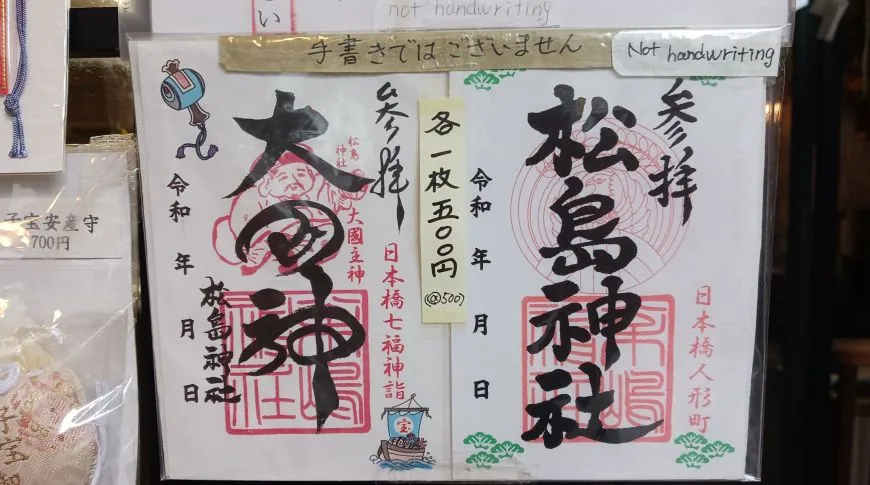 い
not handwriting
手書きではございません
Not handwriting
参拝
大国神
松島神社
大國主神
日本橋七福神詣
宝
令和 年 月 日
松島神社
各一枚五〇〇円
(@500)
参拝
松島神社
日本橋人形町
令和 年 月 日
子宝安産守
700円
子宝